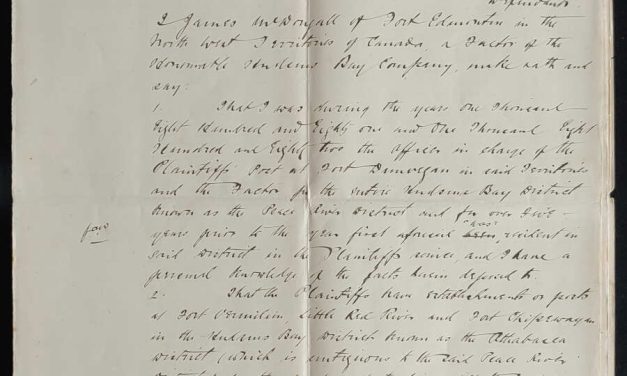 Defendants
I James McDougall of Fort Edmonton in the
North West Territories of Canada, a Factor of the
Honourable Hudsons Bay Company, make oath and
say:
1. That I was during the years one Thousand
Eight Hundred and Eighty one and One Thousand Eight
Hundred and Eighty two the officer in charge of the
Plaintiffs Post at Fort Dunvegan in said Territories
and the Factor for the entire Hudsons Bay District
known as the Peace River District and for over five
years prior to the year first aforesaid "was" resident in
four
said District in the Plaintiffs service, and I have a
personal knowledge of the facts herein deposed to.
2. That the Plaintiffs have establishments or posts
at Fort Vermilion, Little Red River and Fort Chipewayan
in the Hudsons Bay District known as the Athabasca
District (which is contiguous to the said Peace River